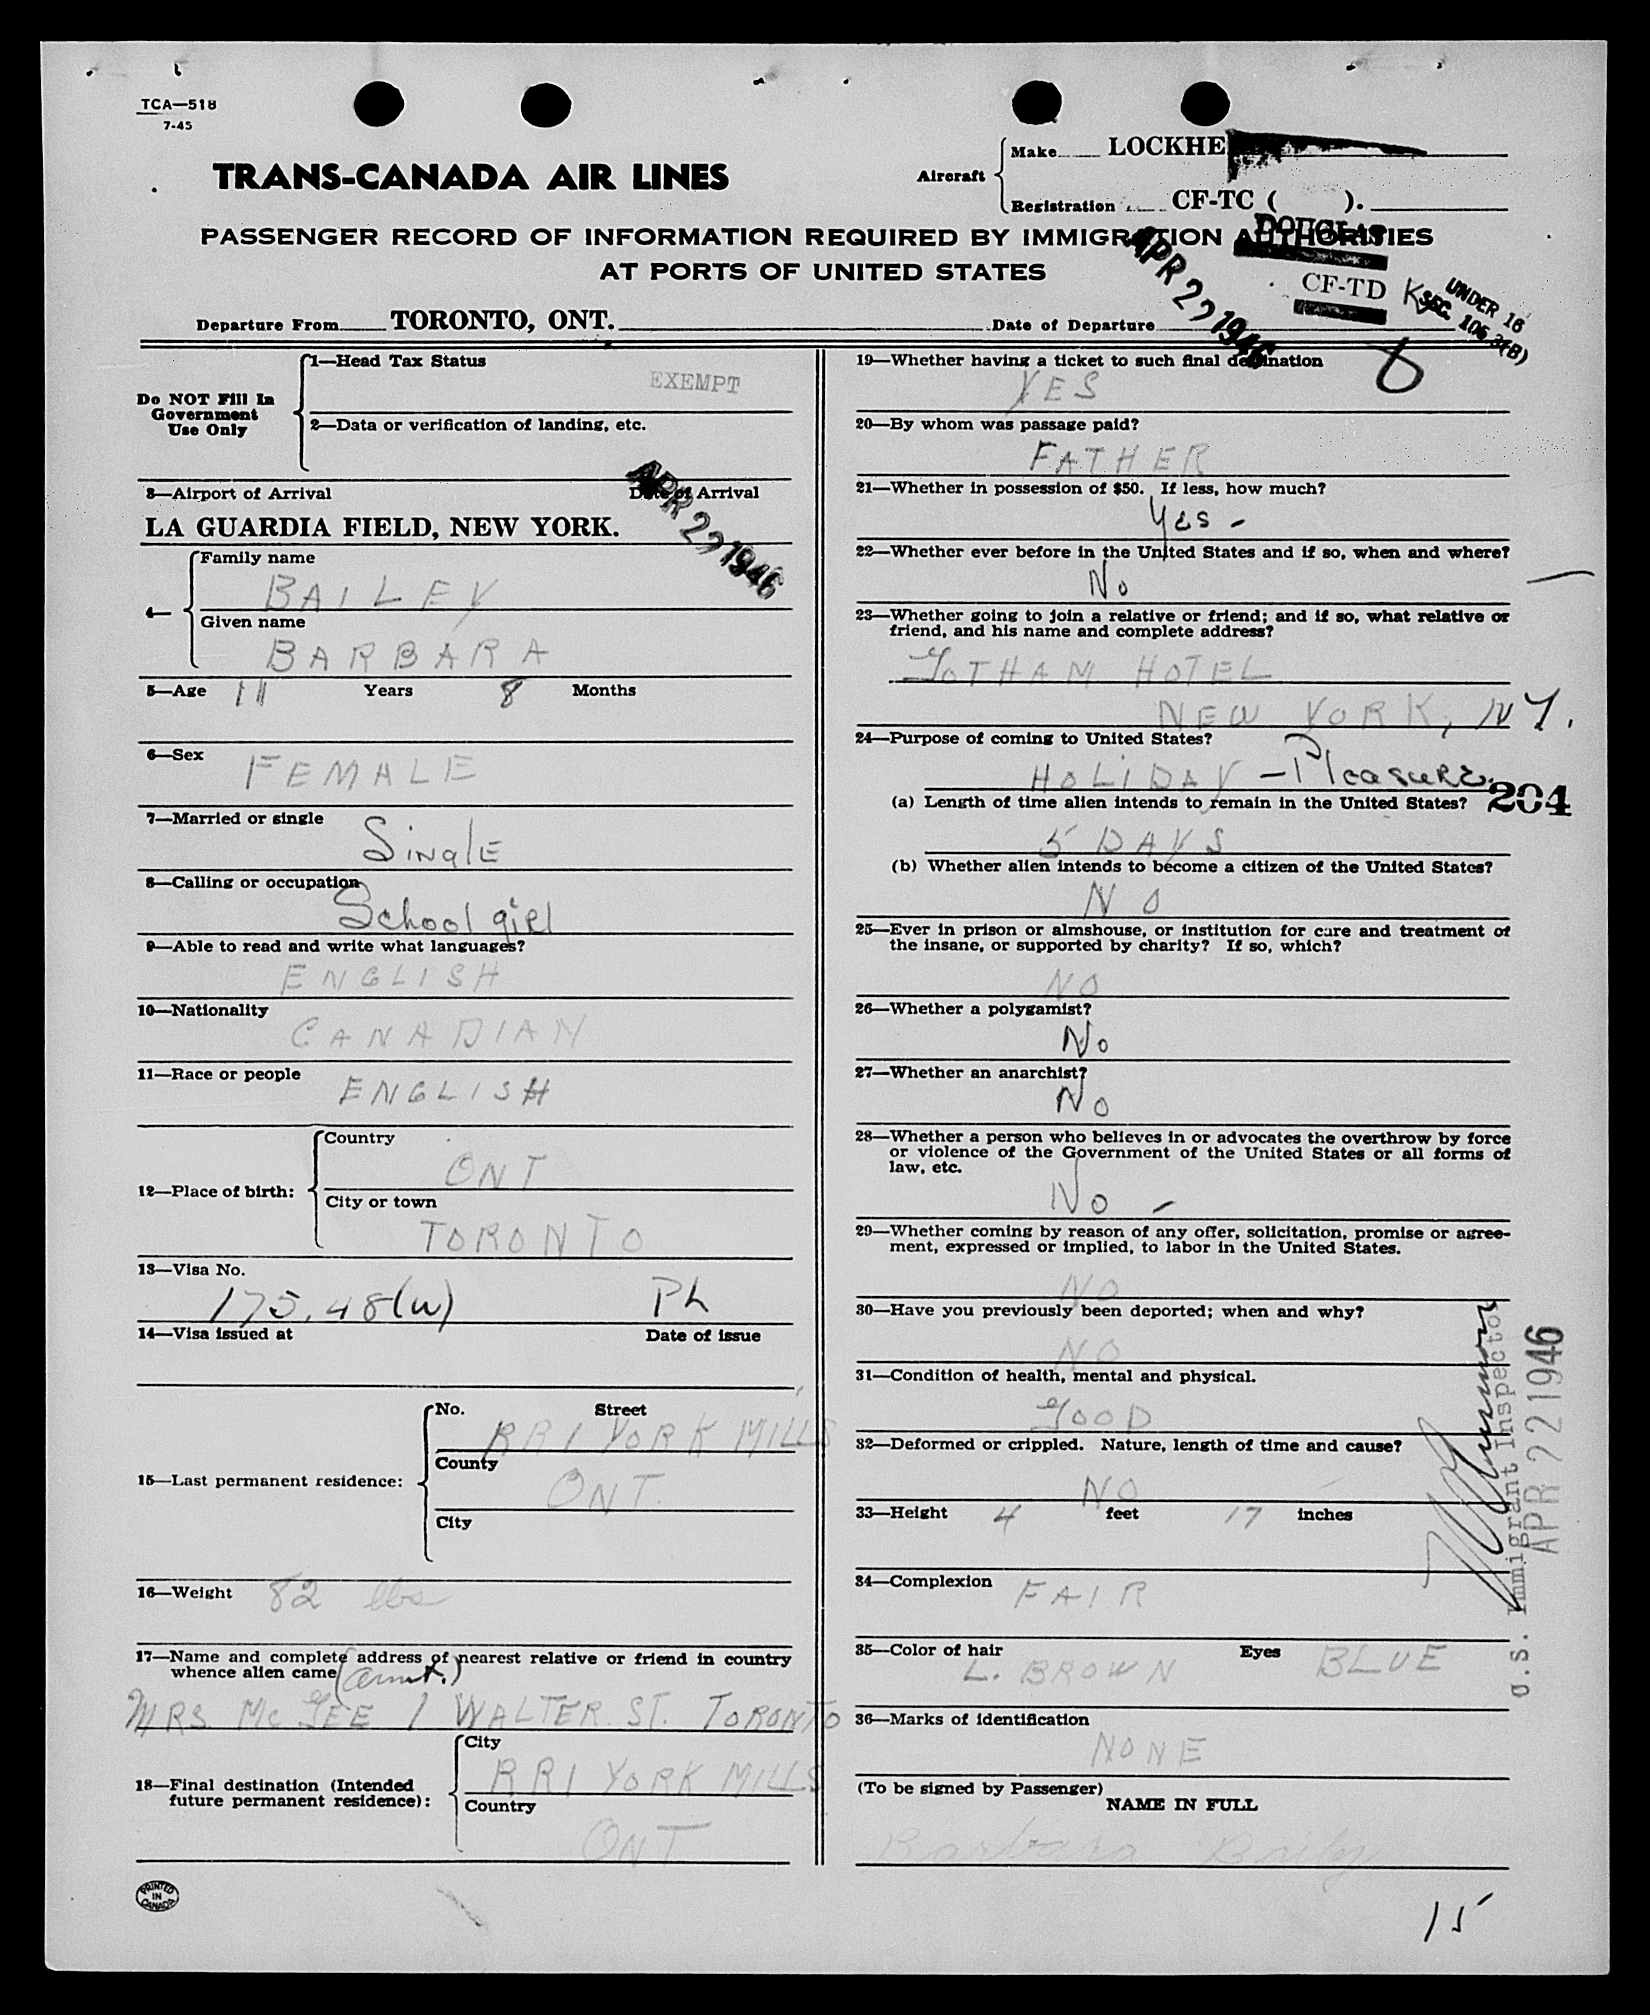 TCA—518
7-45
TRANS-CANADA AIR LINES
Aircraft
Make LOCKHE
Registration CF-TC ( ).
PASSENGER RECORD OF INFORMATION REQUIRED BY IMMIGRATION AUTHORITIES
DOUGLAS
AT PORTS OF UNITED STATES
APR 22 1946
CF-TD K
UNDER 16
SEC. 106.3(B)
Departure From TORONTO, ONT. Date of Departure
Do NOT Fill In
Government
Use Only
1—Head Tax Status
EXEMPT
2—Data or verification of landing, etc.
3—Airport of Arrival Date of Arrival
LA GUARDIA FIELD, NEW YORK.
APR 22 1946
4—
Family name
BAILEY
Given name
BARBARA
5—Age 11 Years 8 Months
6—Sex FEMALE
7—Married or single Single
8—Calling or occupation
School girl
9—Able to read and write what languages?
ENGLISH
10—Nationality
CANADIAN
11—Race or people
ENGLISH
12—Place of birth:
Country
ONT
City or town
TORONTO
13—Visa No.
175.48(w) Ph
14—Visa issued at Date of issue
15—Last permanent residence:
No. Street
RR1 YORK MILLS
County
ONT.
City
16—Weight 82 lbs
17—Name and complete address of nearest relative or friend in country
whence alien came (aunt.)
MRS. McGEE 1 WALTER ST. TORONTO
18—Final destination (Intended
future permanent residence):
City
RR1 YORK MILLS
Country
ONT
PRINTED
IN
CANADA
19—Whether having a ticket to such final destination
YES
20—By whom was passage paid?
FATHER
21—Whether in possession of $50. If less, how much?
Yes -
22—Whether ever before in the United States and if so, when and where?
No
23—Whether going to join a relative or friend; and if so, what relative or
friend, and his name and complete address?
GOTHAM HOTEL
NEW YORK, NY.
24—Purpose of coming to United States?
HOLIDAY - Pleasure.
204
(a) Length of time alien intends to remain in the United States?
5 DAYS
(b) Whether alien intends to become a citizen of the United States?
NO
25—Ever in prison or almshouse, or institution for care and treatment of
the insane, or supported by charity? If so, which?
NO
26—Whether a polygamist?
No
27—Whether an anarchist?
No
28—Whether a person who believes in or advocates the overthrow by force
or violence of the Government of the United States or all forms of
law, etc.
No -
29—Whether coming by reason of any offer, solicitation, promise or agree-
ment, expressed or implied, to labor in the United States.
NO
30—Have you previously been deported; when and why?
NO
31—Condition of health, mental and physical.
GOOD
32—Deformed or crippled. Nature, length of time and cause?
NO
33—Height 4 feet 17 inches
34—Complexion FAIR
35—Color of hair L. BROWN Eyes BLUE
36—Marks of identification
NONE
(To be signed by Passenger)
NAME IN FULL
Barbara Baily
U.S. Immigrant Inspector
APR 22 1946
15